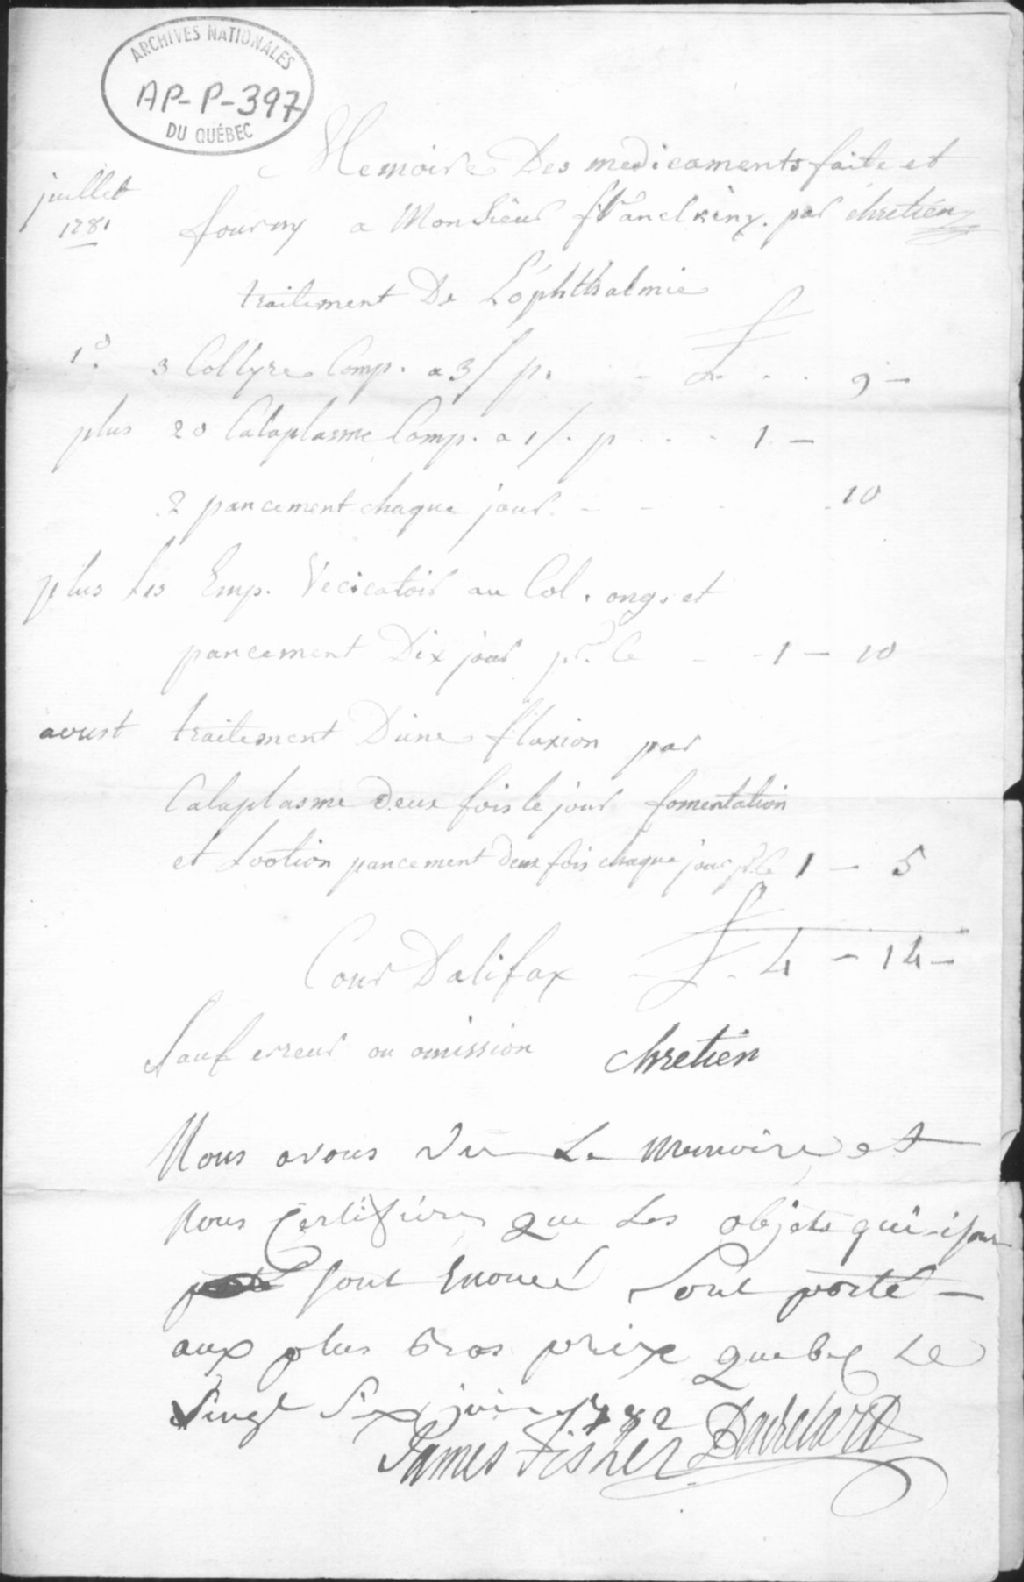 ARCHIVES NATIONALES
AP-P-397
DU QUÉBEC
Memoire Des medicaments faite et
juillet
1781
fourny a Monsieur franckeny. par chretien
traitement De L'ophthalmie
1º 3 Collyres Comp. a 3/ p. £ 9 —
plus 20 Cataplasme Comp. a 1/. p 1 —
2 pancement chaque jour 10
plus Les Emp. Vecicatoir au Col. ong. et
pancement Dix jour pr. Ce 1 — 10
avust traitement D'une fluxion par
Cataplasme deux fois le jour fomentation
et Lootion pancement deux fois chaque jour pr. Ce 1 — 5
Cour Dalifax £ 4 — 14 —
Sauf erreur ou omission chretien
Nous avons Vu Le memoire et
Nous Certifions que Les objets qui
sont sont porté —
aux plus bas prix quebec Le
Vingt Six juin 1782
James Fisher